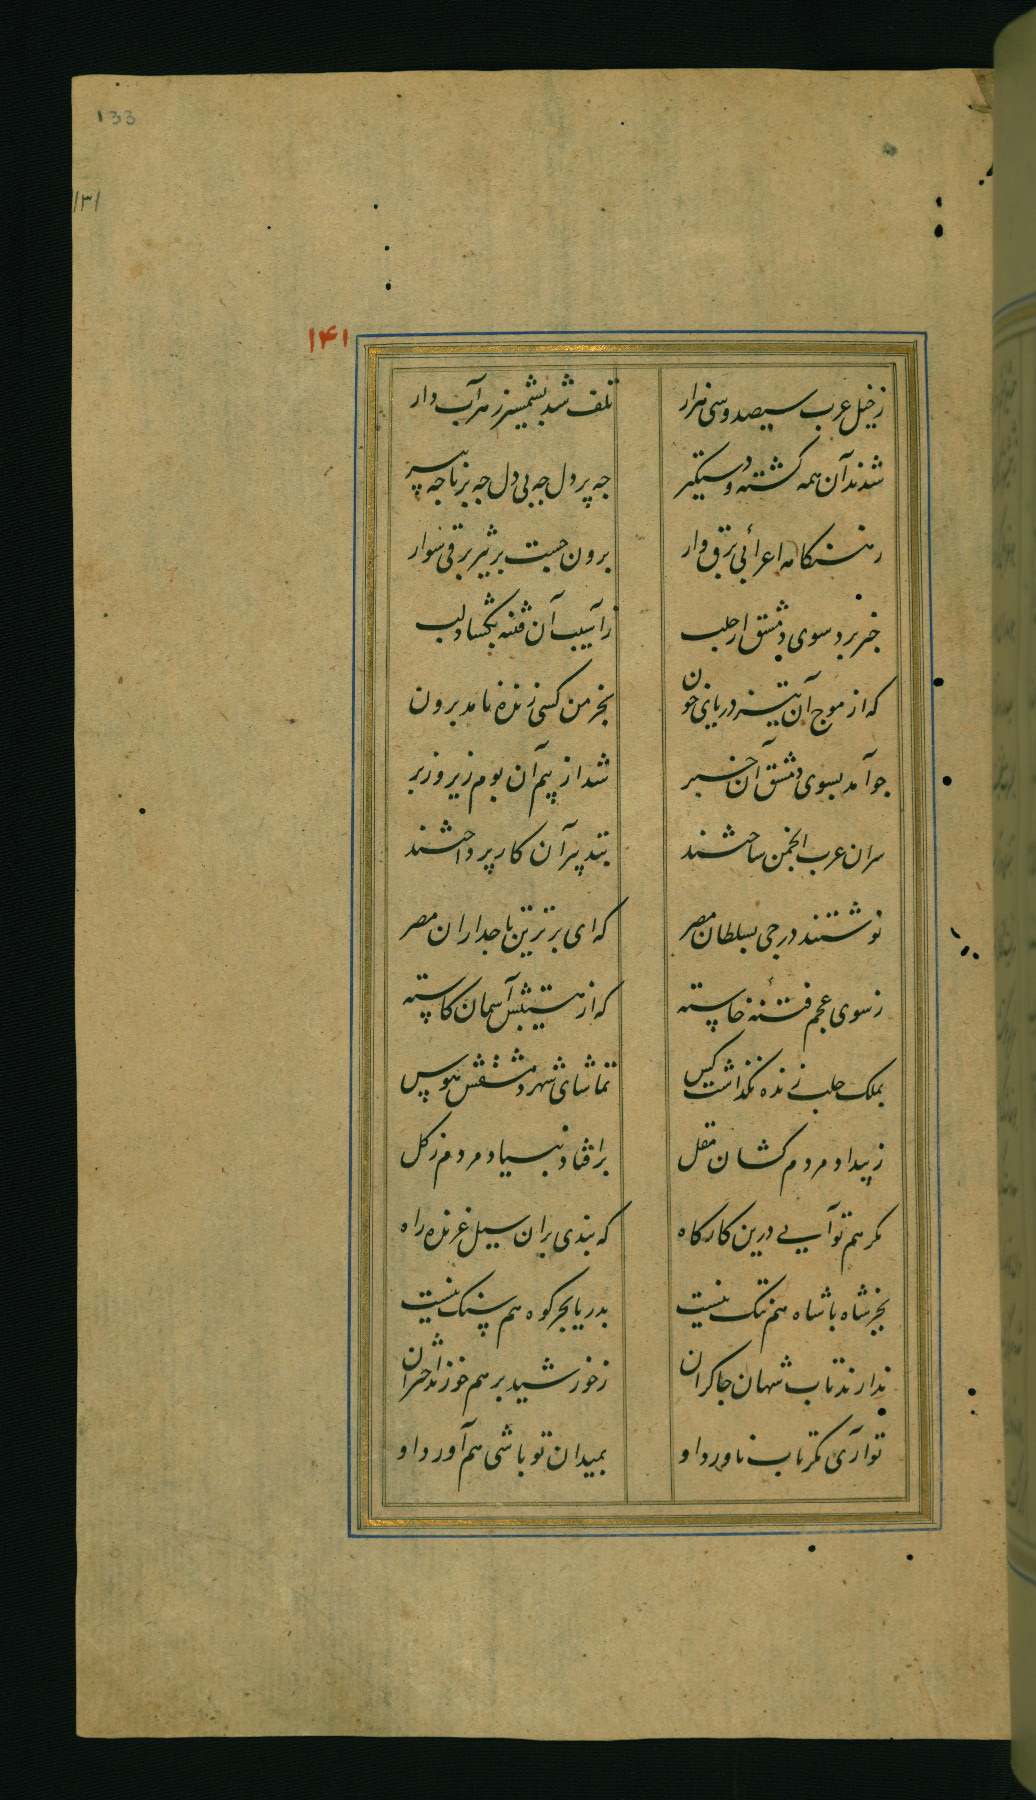 133
۱۳۱
۱۴۱
ز خیل عرب سیصد و سی هزار تلف شد بشمشیر زهر آب دار
شدند آن همه کشته و دستکیر جه پر دل جه بی دل جه برنا جه پیر
اعرائی برق وار برون جست بر برقی سوار
خبر برد سوی دمشق از حلب ز آسیب آن فتنه بکشاد لب
که از موج آن تیز دریای خون بجز من کسی زنده نامد برون
جو آمد بسوی دمشق آن خبر شد از بیم آن بوم زیر و زبر
سران عرب انجمن ساختند بتدبیر آن کار پرداختند
نوشتند درجی بسلطان مصر که ای برترین تاجداران مصر
ز سوی عجم فتنهٔ خاسته که از هیبتش آسمان کاسته
بملک حلب زنده نکذاشت کس تماشای شهر دمشقش هوس
ز بیداد مردم کشان مقل برافتاد بنیاد مردم ز کل
مکر هم تو آیی درین کارکاه که بندی بران سیل غرنده راه
بجز شاه با شاه هم تنک نیست بدریا بجز کوه هم سنک نیست
ندارند تاب شهان جاکران ز خورشید بر هم خورند اختران
تو آری مکر تاب ناورد او بمیدان تو باشی هم آورد او